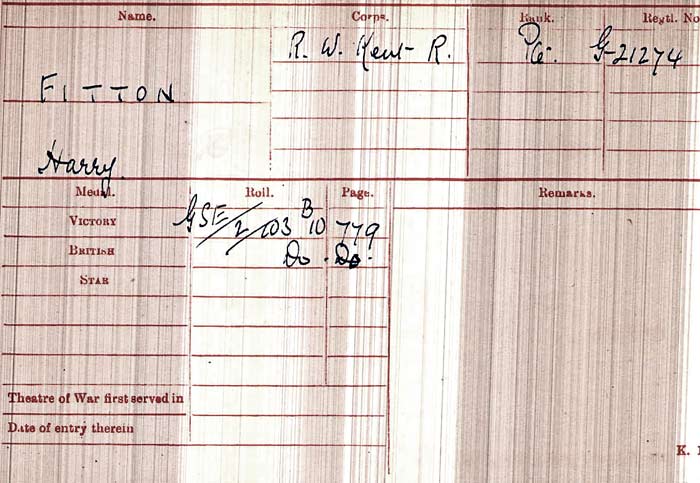 Name. Corps. Rank. Regtl. No
R. W. Kent R. Pte. G-21274
FITTON
Harry
Medal. Roll. Page. Remarks.
VICTORY GSE/2/103 B10 779
BRITISH Do. Do.
STAR
Theatre of War first served in
Date of entry therein
K. 1